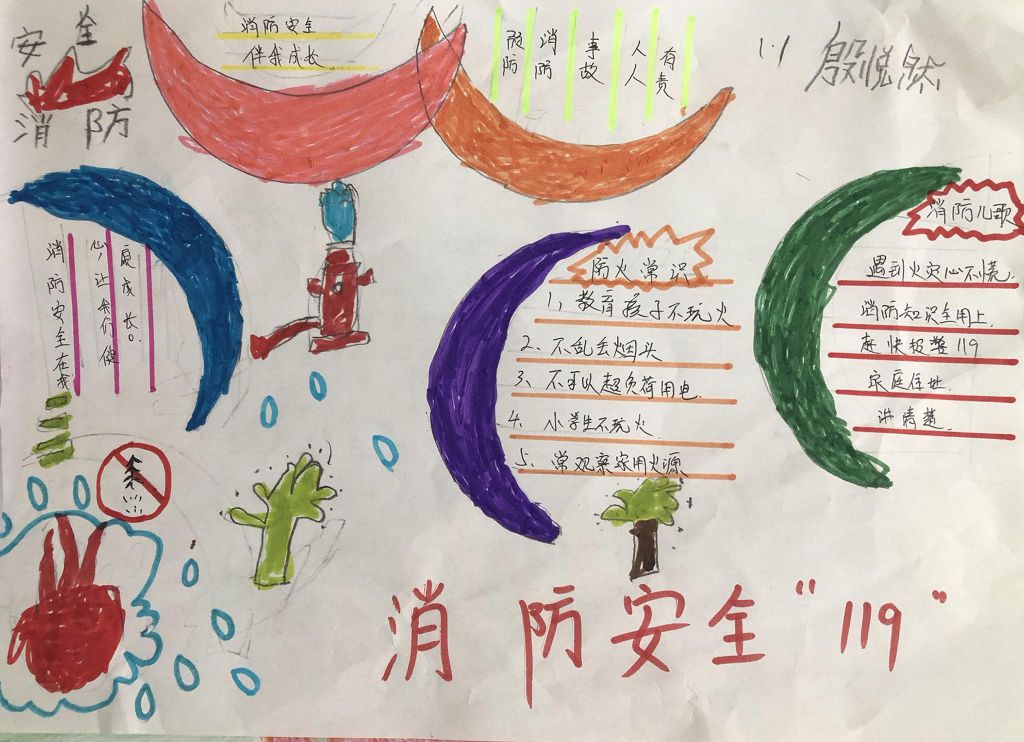 安全
消防
消防安全
伴我成长
预防
消防
事故
人人
有责
殷悦然
消防安全在我
心,让我们健
康成长。
防火常识
1、教育孩子不玩火
2、不乱丢烟头
3、不可以超负荷用电
4、小学生不玩火
5、常观察家用火源
消防儿歌
遇到火灾心不慌
消防知识全用上
赶快报警119
家庭住址
讲清楚
消防安全“119”